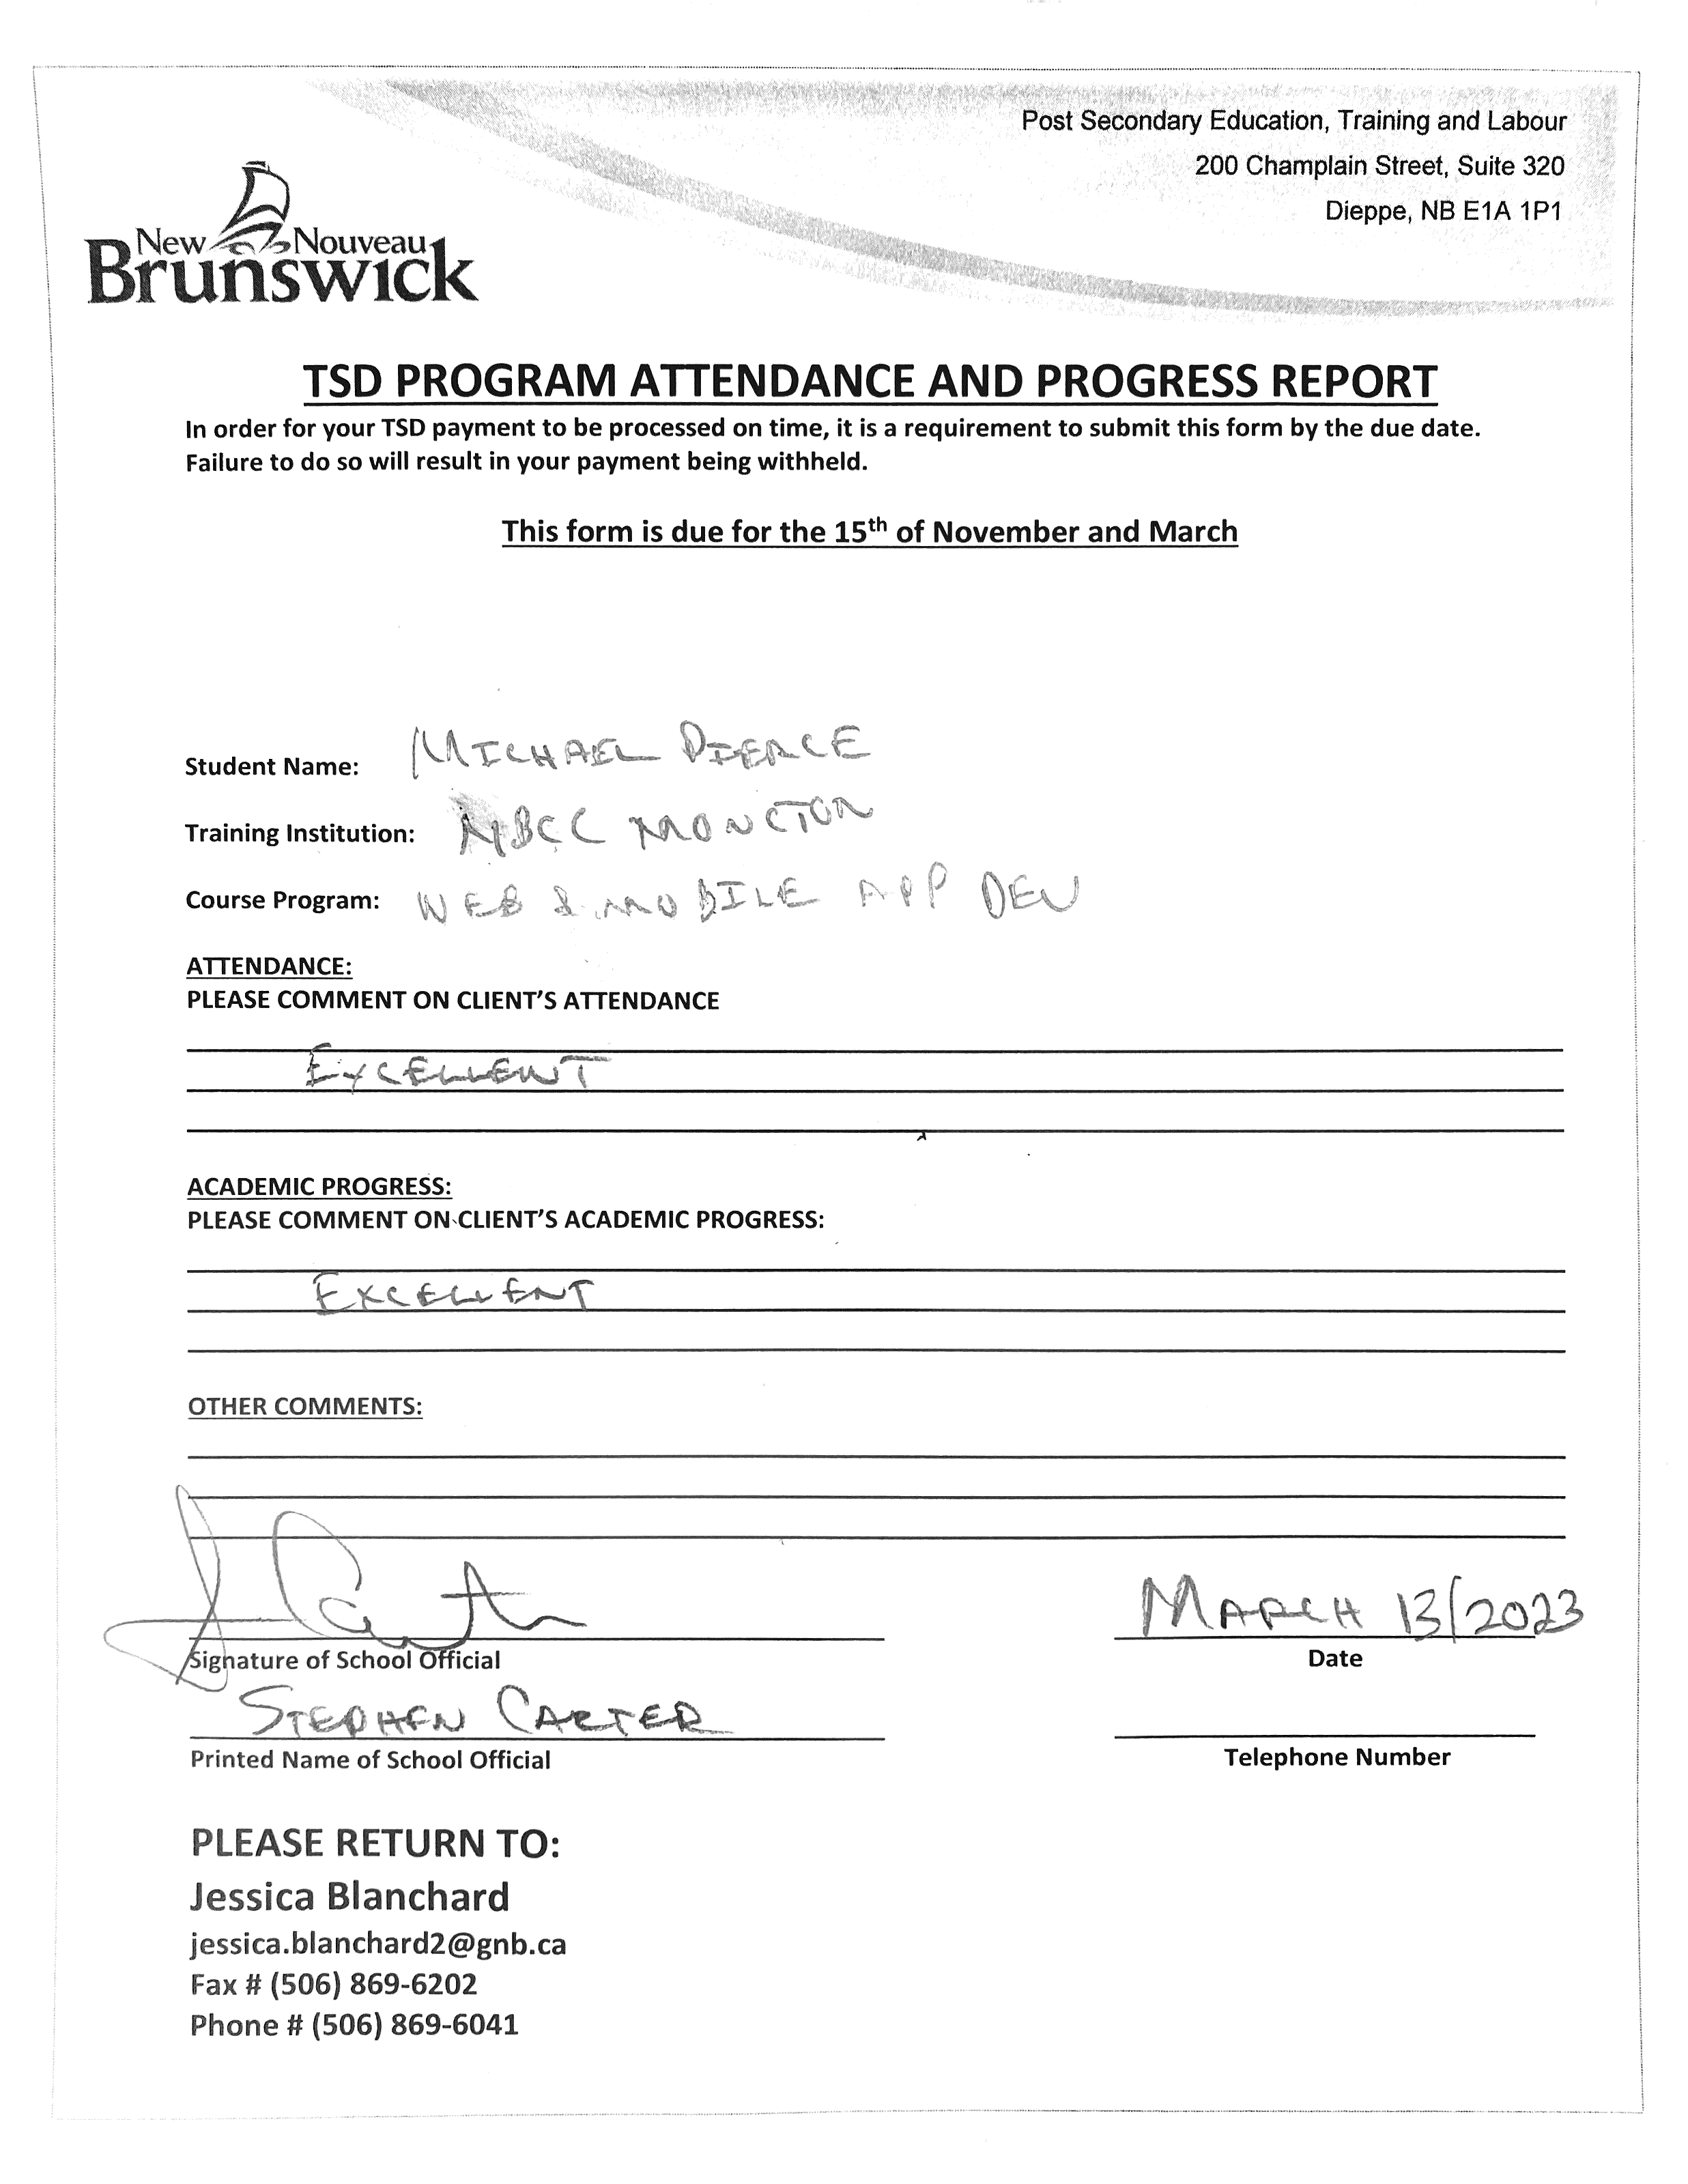 Post Secondary Education, Training and Labour
200 Champlain Street, Suite 320
Dieppe, NB E1A 1P1
New Nouveau
Brunswick
TSD PROGRAM ATTENDANCE AND PROGRESS REPORT
In order for your TSD payment to be processed on time, it is a requirement to submit this form by the due date.
Failure to do so will result in your payment being withheld.
This form is due for the 15th of November and March
Student Name: MICHAEL PIERCE
Training Institution: NBCC MONCTON
Course Program: WEB & MOBILE APP DEV
ATTENDANCE:
PLEASE COMMENT ON CLIENT'S ATTENDANCE
EXCELLENT
ACADEMIC PROGRESS:
PLEASE COMMENT ON CLIENT'S ACADEMIC PROGRESS:
EXCELLENT
OTHER COMMENTS:
MARCH 13/2023
Signature of School Official Date
STEPHEN CARTER
Printed Name of School Official Telephone Number
PLEASE RETURN TO:
Jessica Blanchard
jessica.blanchard2@gnb.ca
Fax # (506) 869-6202
Phone # (506) 869-6041